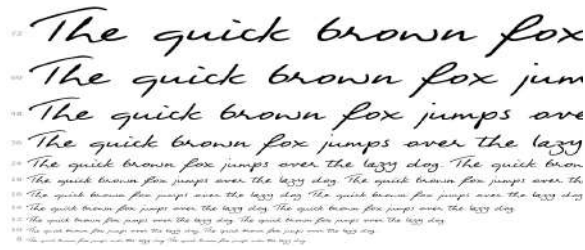 72 The quick brown fox
60 The quick brown fox jum
48 The quick brown fox jumps ove
36 The quick brown fox jumps over the lazy
24 The quick brown fox jumps over the lazy dog. The quick brow
The quick brown fox jumps over the lazy dog. The quick brown fox jumps over the
The quick brown fox jumps over the lazy dog. The quick brown fox jumps over the lazy dog
The quick brown fox jumps over the lazy dog. The quick brown fox jumps over the lazy dog.
The quick brown fox jumps over the lazy dog. The quick brown fox jumps over the lazy dog.
The quick brown fox jumps over the lazy dog. The quick brown fox jumps over the lazy dog.
The quick brown fox jumps over the lazy dog. The quick brown fox jumps over the lazy dog.